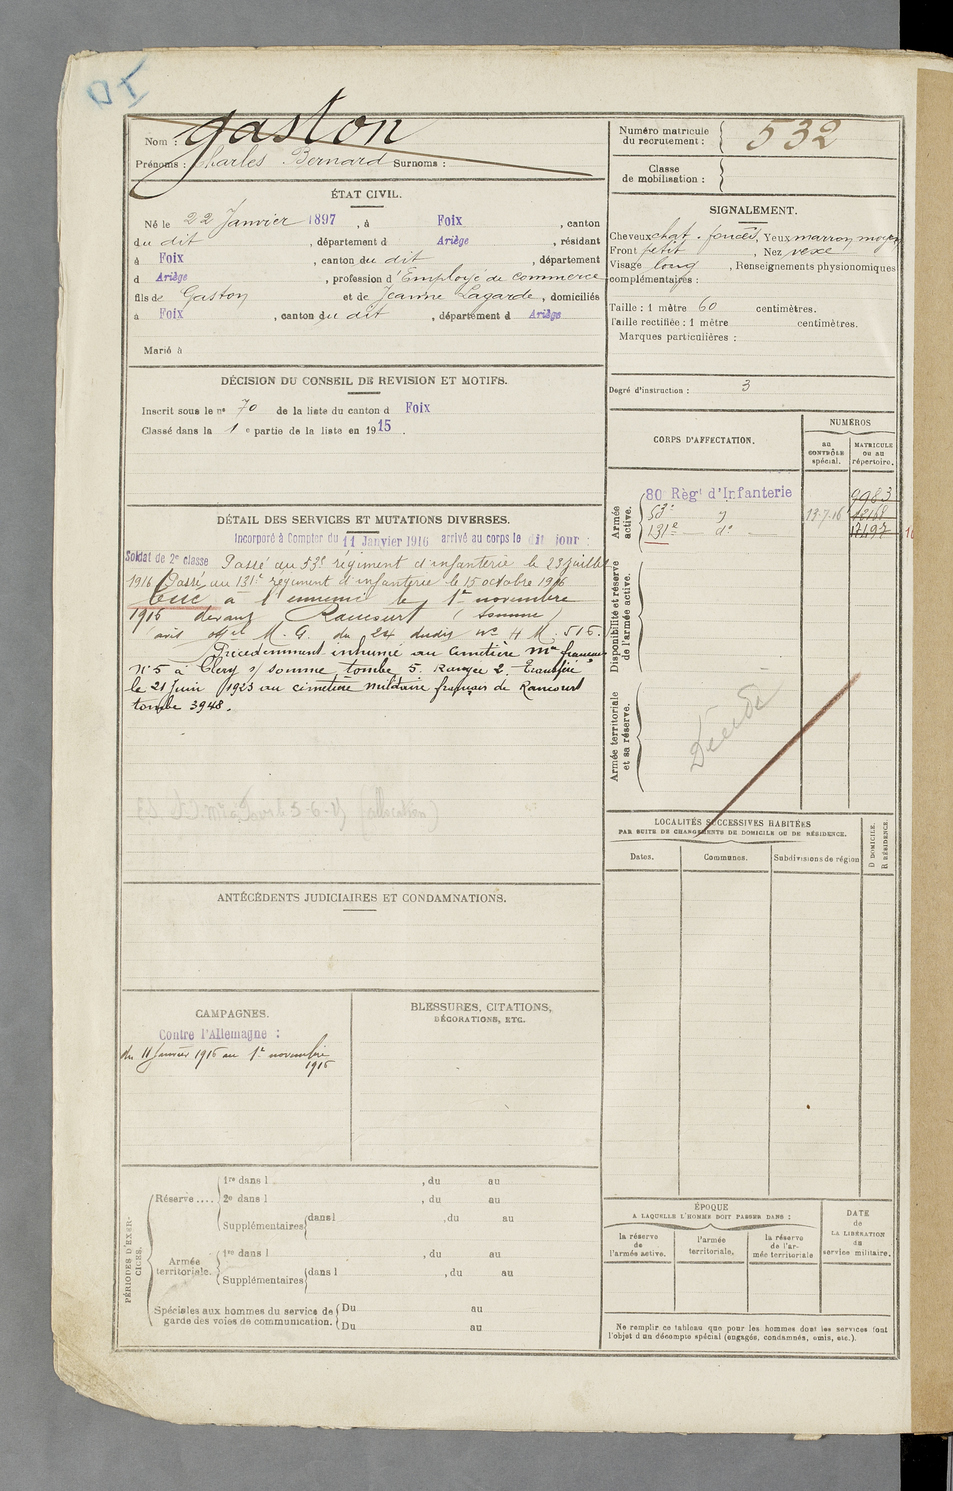 DI
Nom : Gaston
Prénoms : Charles Bernard Surnoms :
Numéro matricule du recrutement : 532
Classe de mobilisation :
ÉTAT CIVIL.
Né le 22 Janvier 1897, à Foix, canton
du dit, département d Ariège, résidant
à Foix, canton du dit, département
d Ariège, profession d'Employé de commerce
fils de Gaston et de Jeanne Lagarde, domiciliés
à Foix, canton du dit, département d Ariège
Marié à
SIGNALEMENT.
Cheveux chat. foncés, Yeux marron moyen
Front petit, Nez vexe
Visage long, Renseignements physionomiques
complémentaires :
Taille : 1 mètre 60 centimètres.
Taille rectifiée : 1 mètre centimètres.
Marques particulières :
Degré d'instruction : 3
DÉCISION DU CONSEIL DE REVISION ET MOTIFS.
Inscrit sous le n° 70 de la liste du canton d Foix
Classé dans la 1e partie de la liste en 1915.
CORPS D'AFFECTATION.
NUMÉROS
au CONTRÔLE spécial.
MATRICULE ou au répertoire.
Armée active.
80 Régt d'Infanterie 9983
53e 13-7-16 12168
131e do 17497
Disponibilité et réserve de l'armée active.
Armée territoriale et sa réserve.
Décédé
DÉTAIL DES SERVICES ET MUTATIONS DIVERSES.
Incorporé à Compter du 11 Janvier 1916 arrivé au corps le dit jour :
Soldat de 2e classe Passé au 53e régiment d'infanterie le 23 juillet
1916 Passé au 131e régiment d'infanterie le 15 octobre 1916
Tué à l'ennemi le 1er novembre
1916 devant Rancourt (Somme)
(avis offel M. G. du 24 dudit No H M. 515.
Précédemment inhumé au Cimetière Mre français
N° 5 à Clery s/ Somme tombe 5. Rangée 2. Transféré
le 21 Juin 1923 au cimetière militaire français de Rancourt
tombe 3948.
LOCALITÉS SUCCESSIVES HABITÉES
PAR SUITE DE CHANGEMENTS DE DOMICILE OU DE RÉSIDENCE.
Dates.
Communes.
Subdivisions de région
D DOMICILE.
R RÉSIDENCE.
ANTÉCÉDENTS JUDICIAIRES ET CONDAMNATIONS.
CAMPAGNES.
Contre l'Allemagne :
du 11 Janvier 1916 au 1er novembre
1916
BLESSURES, CITATIONS,
DÉCORATIONS, ETC.
PÉRIODES D'EXERCICES.
Réserve ....
1re dans l , du au
2e dans l , du au
Supplémentaires dans l , du au
Armée territoriale.
1re dans l , du au
Supplémentaires dans l , du au
Spéciales aux hommes du service de garde des voies de communication.
Du au
Du au
ÉPOQUE
A LAQUELLE L'HOMME DOIT PASSER DANS :
la réserve de l'armée active.
l'armée territoriale.
la réserve de l'armée territoriale
DATE de LA LIBÉRATION du service militaire.
Ne remplir ce tableau que pour les hommes dont les services font
l'objet d'un décompte spécial (engagés, condamnés, omis, etc.).